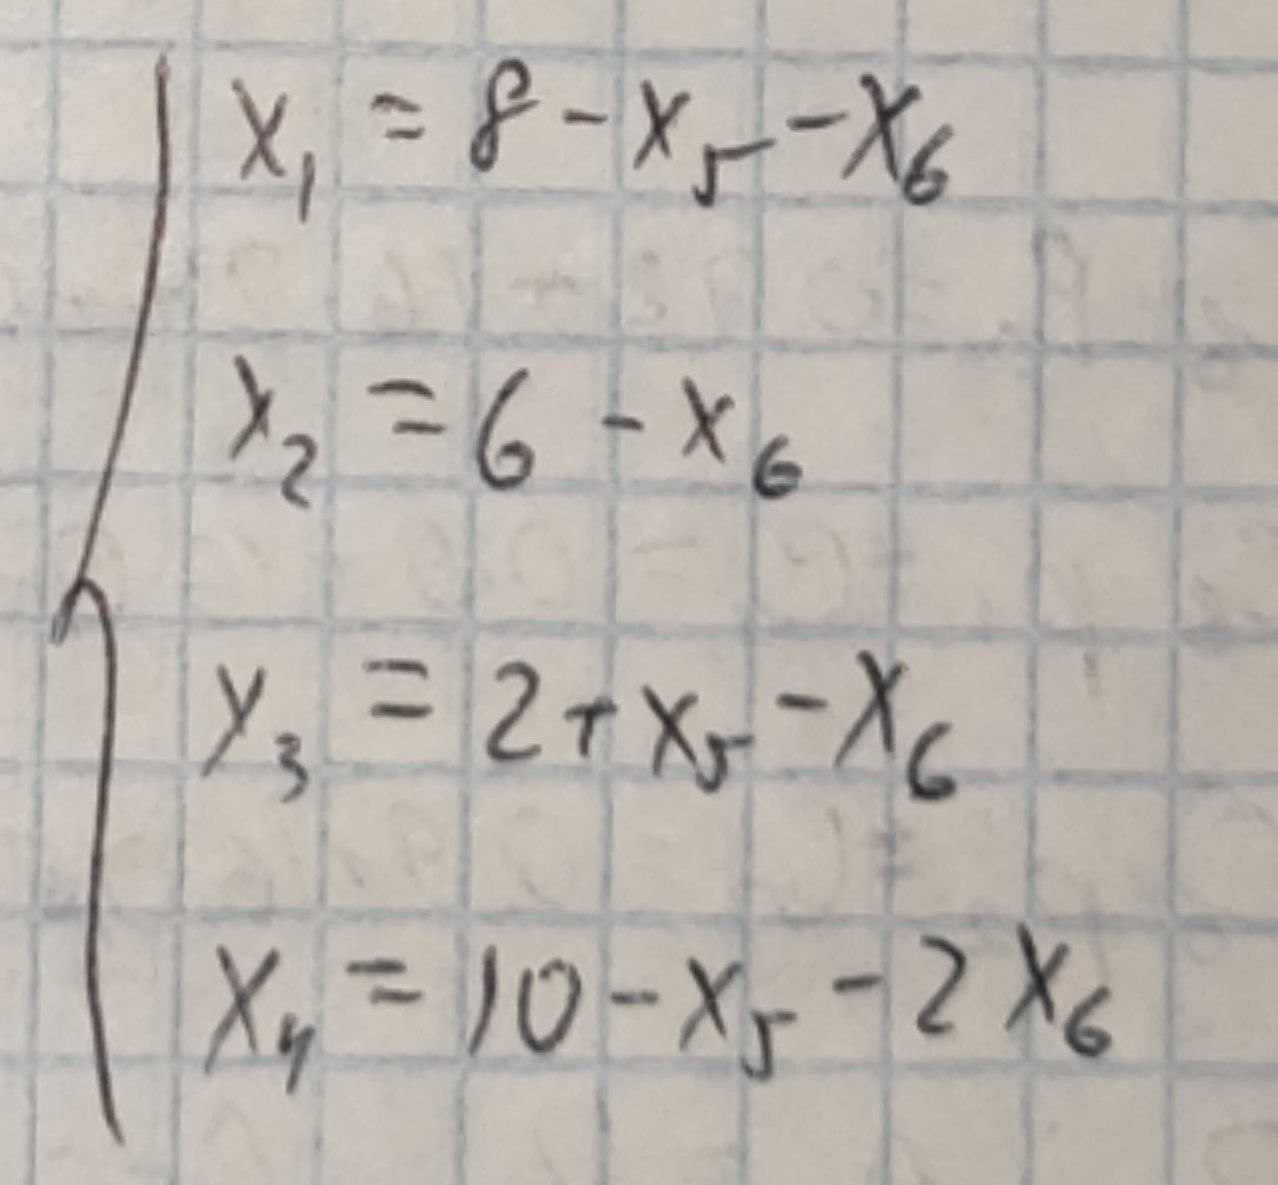 x₁ = 8 - x₅ - x₆
x₂ = 6 - x₆
x₃ = 2 + x₅ - x₆
x₄ = 10 - x₅ - 2x₆